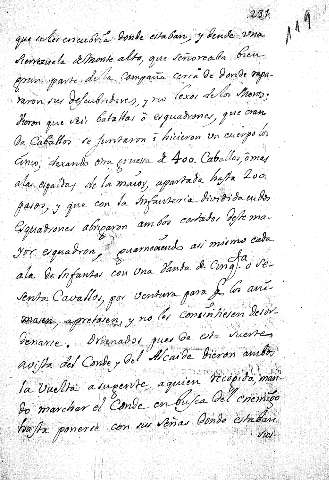 231
119
que se les encubria donde estaban, y desde una
Sierezuela de Monte alto, que señoreaba bien
gran parte de la campaña cerca de donde repa
raron sus descubridores, y no lexos de los Moros.
Vieron que seis batallas ó esquadrones, que eran
de Caballos se juntaron é hicieron un cuerpo los
cinco, dexando otra gruesa de 400 Caballos, ó mas
a las espaldas de la maior, apartada hasta 200
pasos, y que con la Infanteria dividida en dos
Esquadrones abrigaron ambos costados deste ma
yor esquadron, guarneciendo asi mismo cada
ala de Infantes con una vanda de Cinqta ó Se
senta Cavallos, por ventura para q los
masen, apretasen, y no les consintiesen desor
denarse. Ordenados pues de esta suerte
a vista del Conde y del Alcaide dieron ambos
la vuelta a su gente, a quien recogida, man
do marchar el Conde en busca del enemigo
hasta ponerse con sus Señas donde estaban
sus